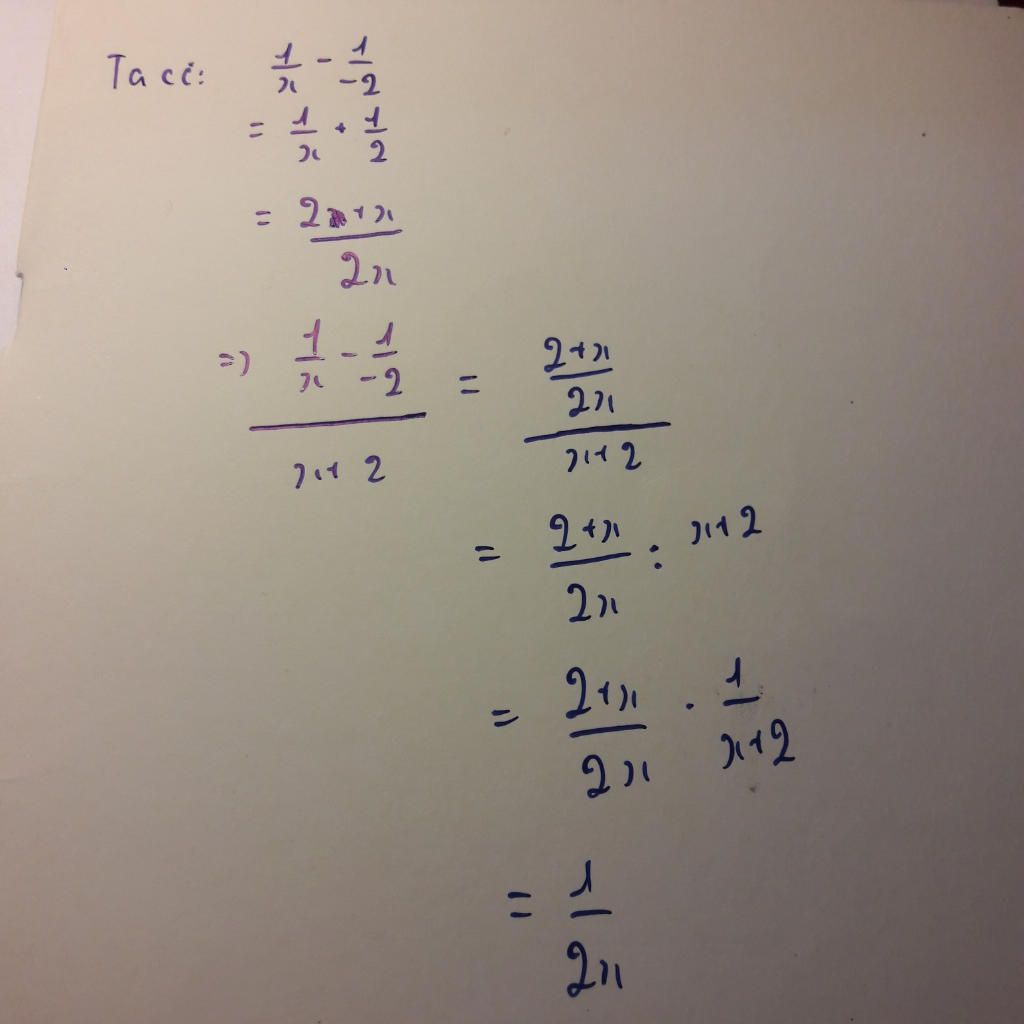 Ta có: 1/x - 1/-2
= 1/x + 1/2
= 2+x/2x
=> (1/x - 1/-2)/(x+2) = ((2+x)/2x)/(x+2)
= (2+x)/2x : x+2
= (2+x)/2x . 1/(x+2)
= 1/2x